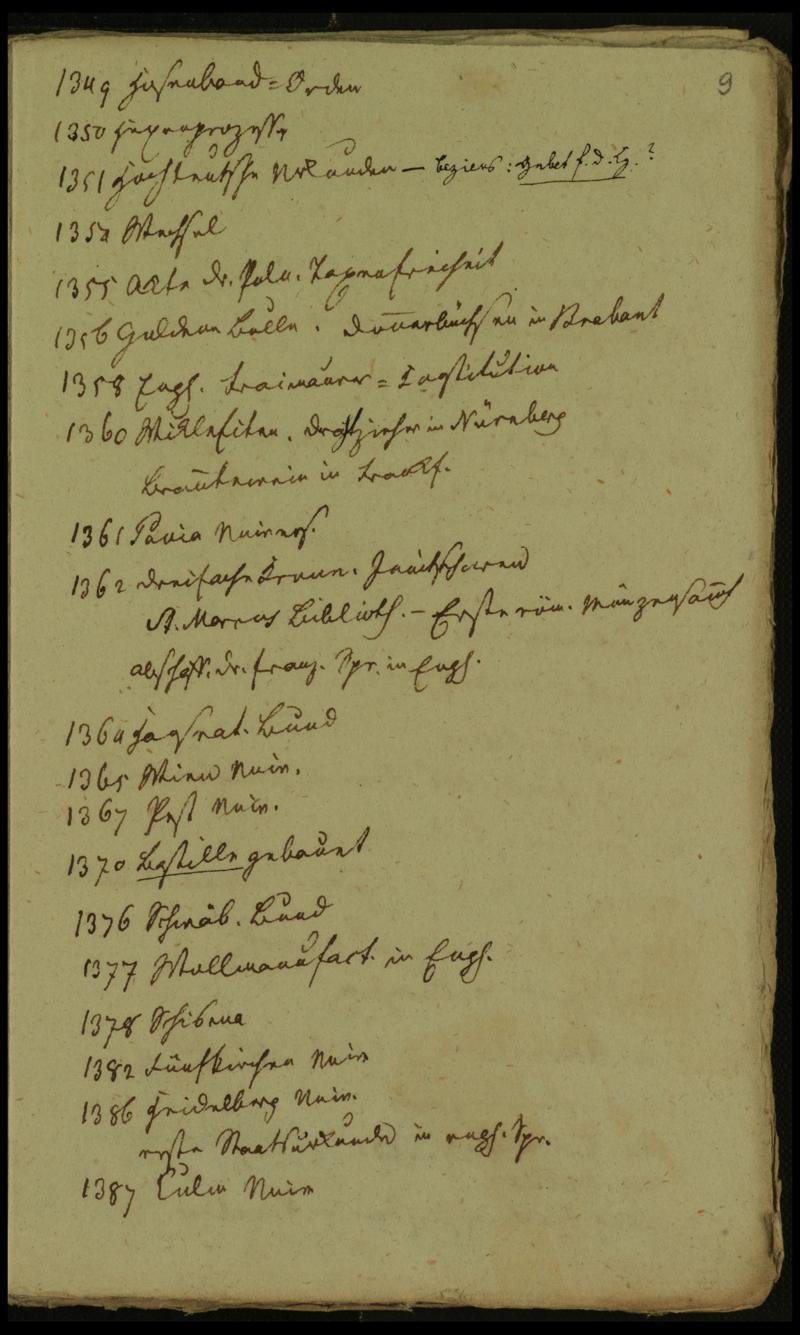 9
1349 Hosenband=Orden
1350 Hexenprozesse
1351 Hochteutsche Urkunden — Beziers: Gebet f. d. Kg.?
1354 Wechsel
1355 Acte dr. Poln. Taxenfreiheit
1356 Guldene Bulle. Donnerbüchsen in Brabant
1358 Engl. Freimaurer=Institution
1360 Wiklefiten. Drahtzieher in Nürnberg
Brantewein in Frankf.
1361 Pavia Univers.
1362 Dreifache Krone. Janitscharen
St. Marcus Biblioth. — Erste röm. Münzensamml
abschaff. dr. franz. Spr. in Engl.
1364 Hanseat. Bund
1365 Wien Univ.
1367 Pest Univ.
1370 Bastille gebauet
1376 Schwäb. Bund
1377 Wollmanufact. in Engl.
1378 Schisma
1382 Fünfkirchen Univ
1386 Heidelberg Univ.
erste Staatsurkunde in engl. Spr.
1387 Culm Univ